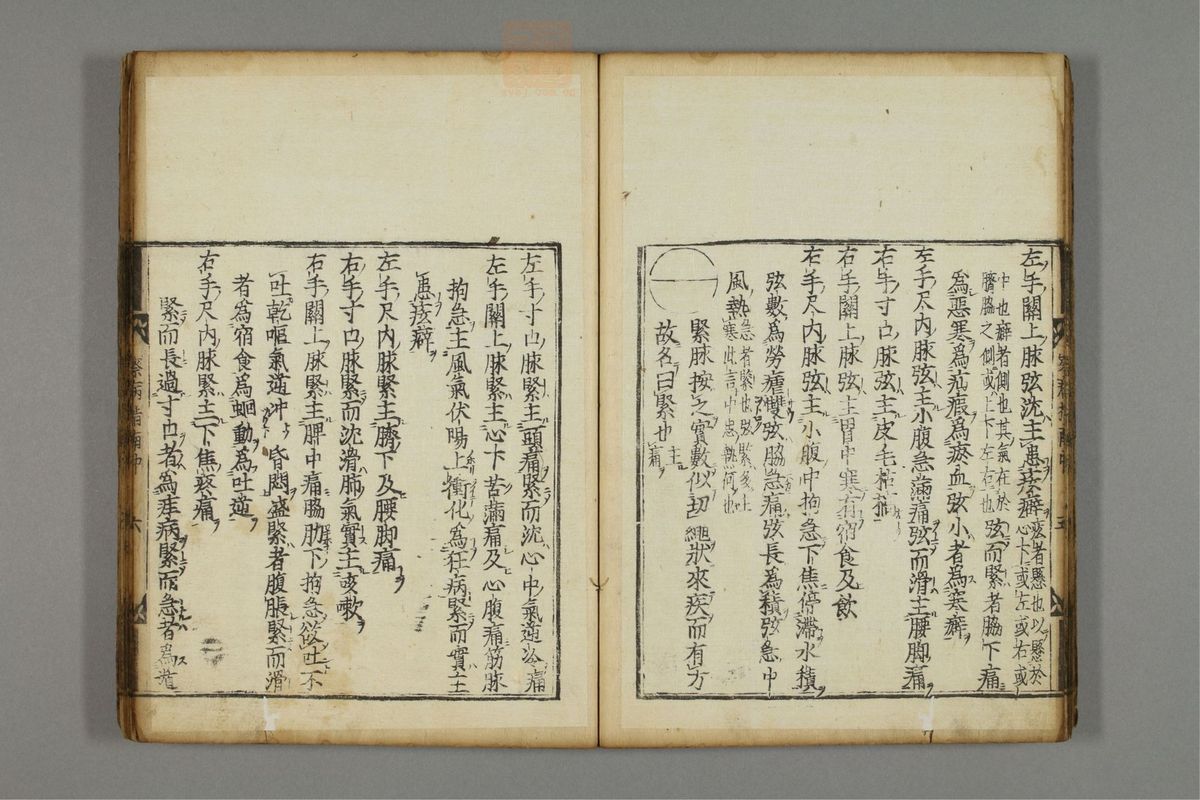 左手關上脉弦沈主患痃癖痃者懸也以懸於心下或左或右或
中也癖者側也其氣在於臍脇之側或上下左右也弦而緊者脇下痛
為惡寒為疝瘕為瘀血弦小者為寒癖
左手尺内脉弦主小腹急滿痛弦而滑主腰脚痛
右手寸口脉弦主皮毛枯槁
右手關上脉弦主胃中寒有宿食及飲
右手尺内脉弦主小腹中拘急下焦停滯水積
弦數為勞瘧雙弦脇急痛弦長為積弦急中
風熱急者緊也弦緊多主寒此言中患熱何也
緊脉按之實數似切繩狀來疾而有力
故名曰緊也主痛
左手寸口脉緊主頭痛緊而沈心中氣逆冷痛
左手關上脉緊主心下苦滿痛及心腹痛筋脉
拘急主風氣伏陽上衝化為狂病緊而實主
患痃癖
左手尺内脉緊主臍下及腰脚痛
右手寸口脉緊而沈滑肺氣實主咳嗽
右手關上脉緊主脾中痛脇肋下拘急欲吐不
吐乾嘔氣逆冲昏悶盛緊者腹脹緊而滑
者為宿食為蛔動為吐逆
右手尺内脉緊主下焦疼痛
緊而長過寸口者為疰病緊而急者為遁
察病指南中 六